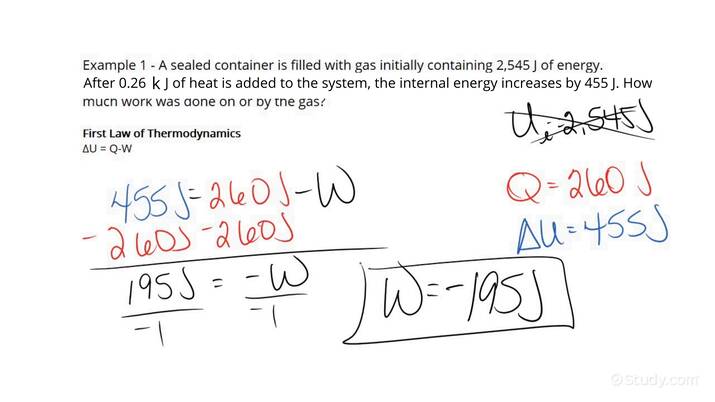 Example 1 - A sealed container is filled with gas initially containing 2,545 J of energy.
After 0.26 k J of heat is added to the system, the internal energy increases by 455 J. How
much work was done on or by the gas?
Uᵢ=2,545J
First Law of Thermodynamics
ΔU = Q-W
455J=260J-W
Q=260 J
-260J -260J
ΔU=455J
195J = -W
-1 -1
W=-195J
©Study.com